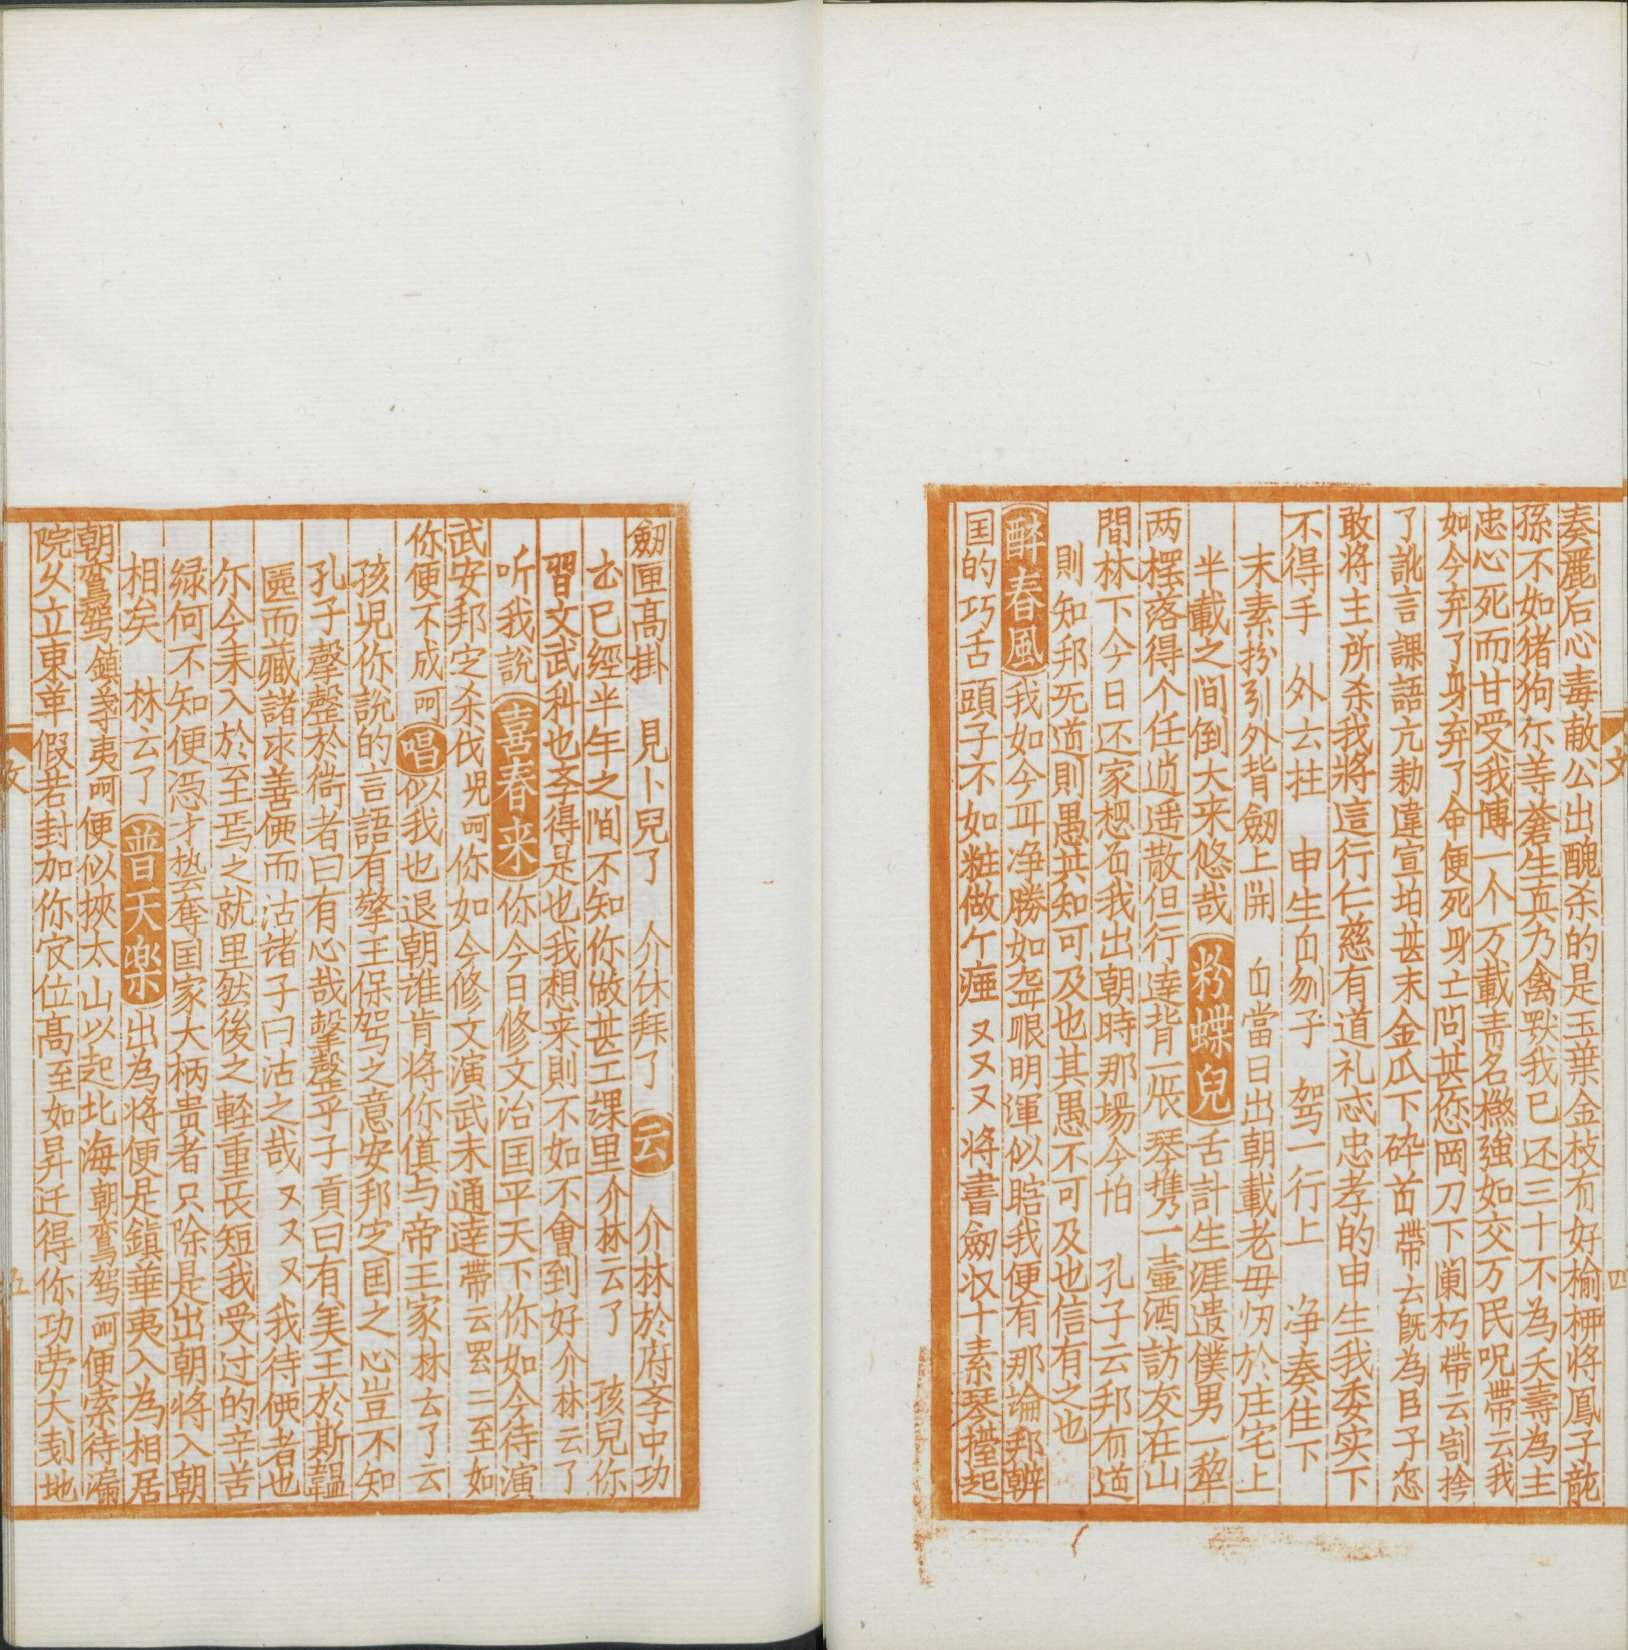 奏麗后心毒敝公出醜杀的是玉葉金枝有好榆栁将鳳子龍
孫不如猪狗尓等蒼生真乃禽獸我已还三十不為夭壽為主
忠心死而甘受我博一个万載清名㩧強如交万民呪帶云我
如今弃了身弃了命便死身亡問甚您岡刀下闌朽帶云割捨
了訛言課語亢勑違宣怕甚末金瓜下碎首帶云既為臣子怎
敢将主所杀我將這行仁慈有道礼忒忠孝的申生我委实下
不得手 外云拄 申生自刎子 驾一行上 净奏住下
末素扮引外背劒上開 自當日出朝載老母㓜於庄宅上
半載之间倒大来悠哉 粉蝶兒 舌計生涯遣僕男一犂
两㯿落得个任逍遥散但行逹背一張琴㩗一壷酒訪友在山
間林下今日还家想名我出朝時那場今怕 孔子云邦有道
則知邦无道則愚其知可及也其愚不可及也信有之也
醉春風 我如今耳净勝如聋眼明渾似瞎我便有那論邦辨
国的巧舌頭子不如粧做个瘂 又又又 将書劒収十素琴㙜起
文 四
劒匣高掛 見卜兒了 介休拜了 云 介林於府斈中功
㐀已經半年之间不知你做甚工課里介林云了 孩兒你
習文武科也斈得是也我想来則不如不會到好介林云了
听我說 喜春来 你今日修文治国平天下你如今待演
武安邦定杀伐児呵你如今修文演武未通逹帶云罢二至如
你便不成呵 唱 似我也退朝誰肯将你值与帝王家林云了云
孩児你說的言語有擎王保驾之意安邦定国之心豈不知
孔子擊磬於衛者曰有心哉擊磬乎子貢曰有美玉於斯韞
匵而藏諸求善價而沽诸子曰沽之哉 又又又 我待價者也
尓今未入於至焉之就里然後之軽重長短我受过的辛苦
緑何不知便凴才埶夺国家大柄贵者只除是出朝将入朝
相矣 林云了 普天楽 出為将便是鎮華夷入為相居
朝鸞驾鎮䓁夷呵便似挾太山以起北海朝鸞驾呵便索待漏
院久立東華假若封加你㝎位高至如昇迁得你功劳大刬地
文 五